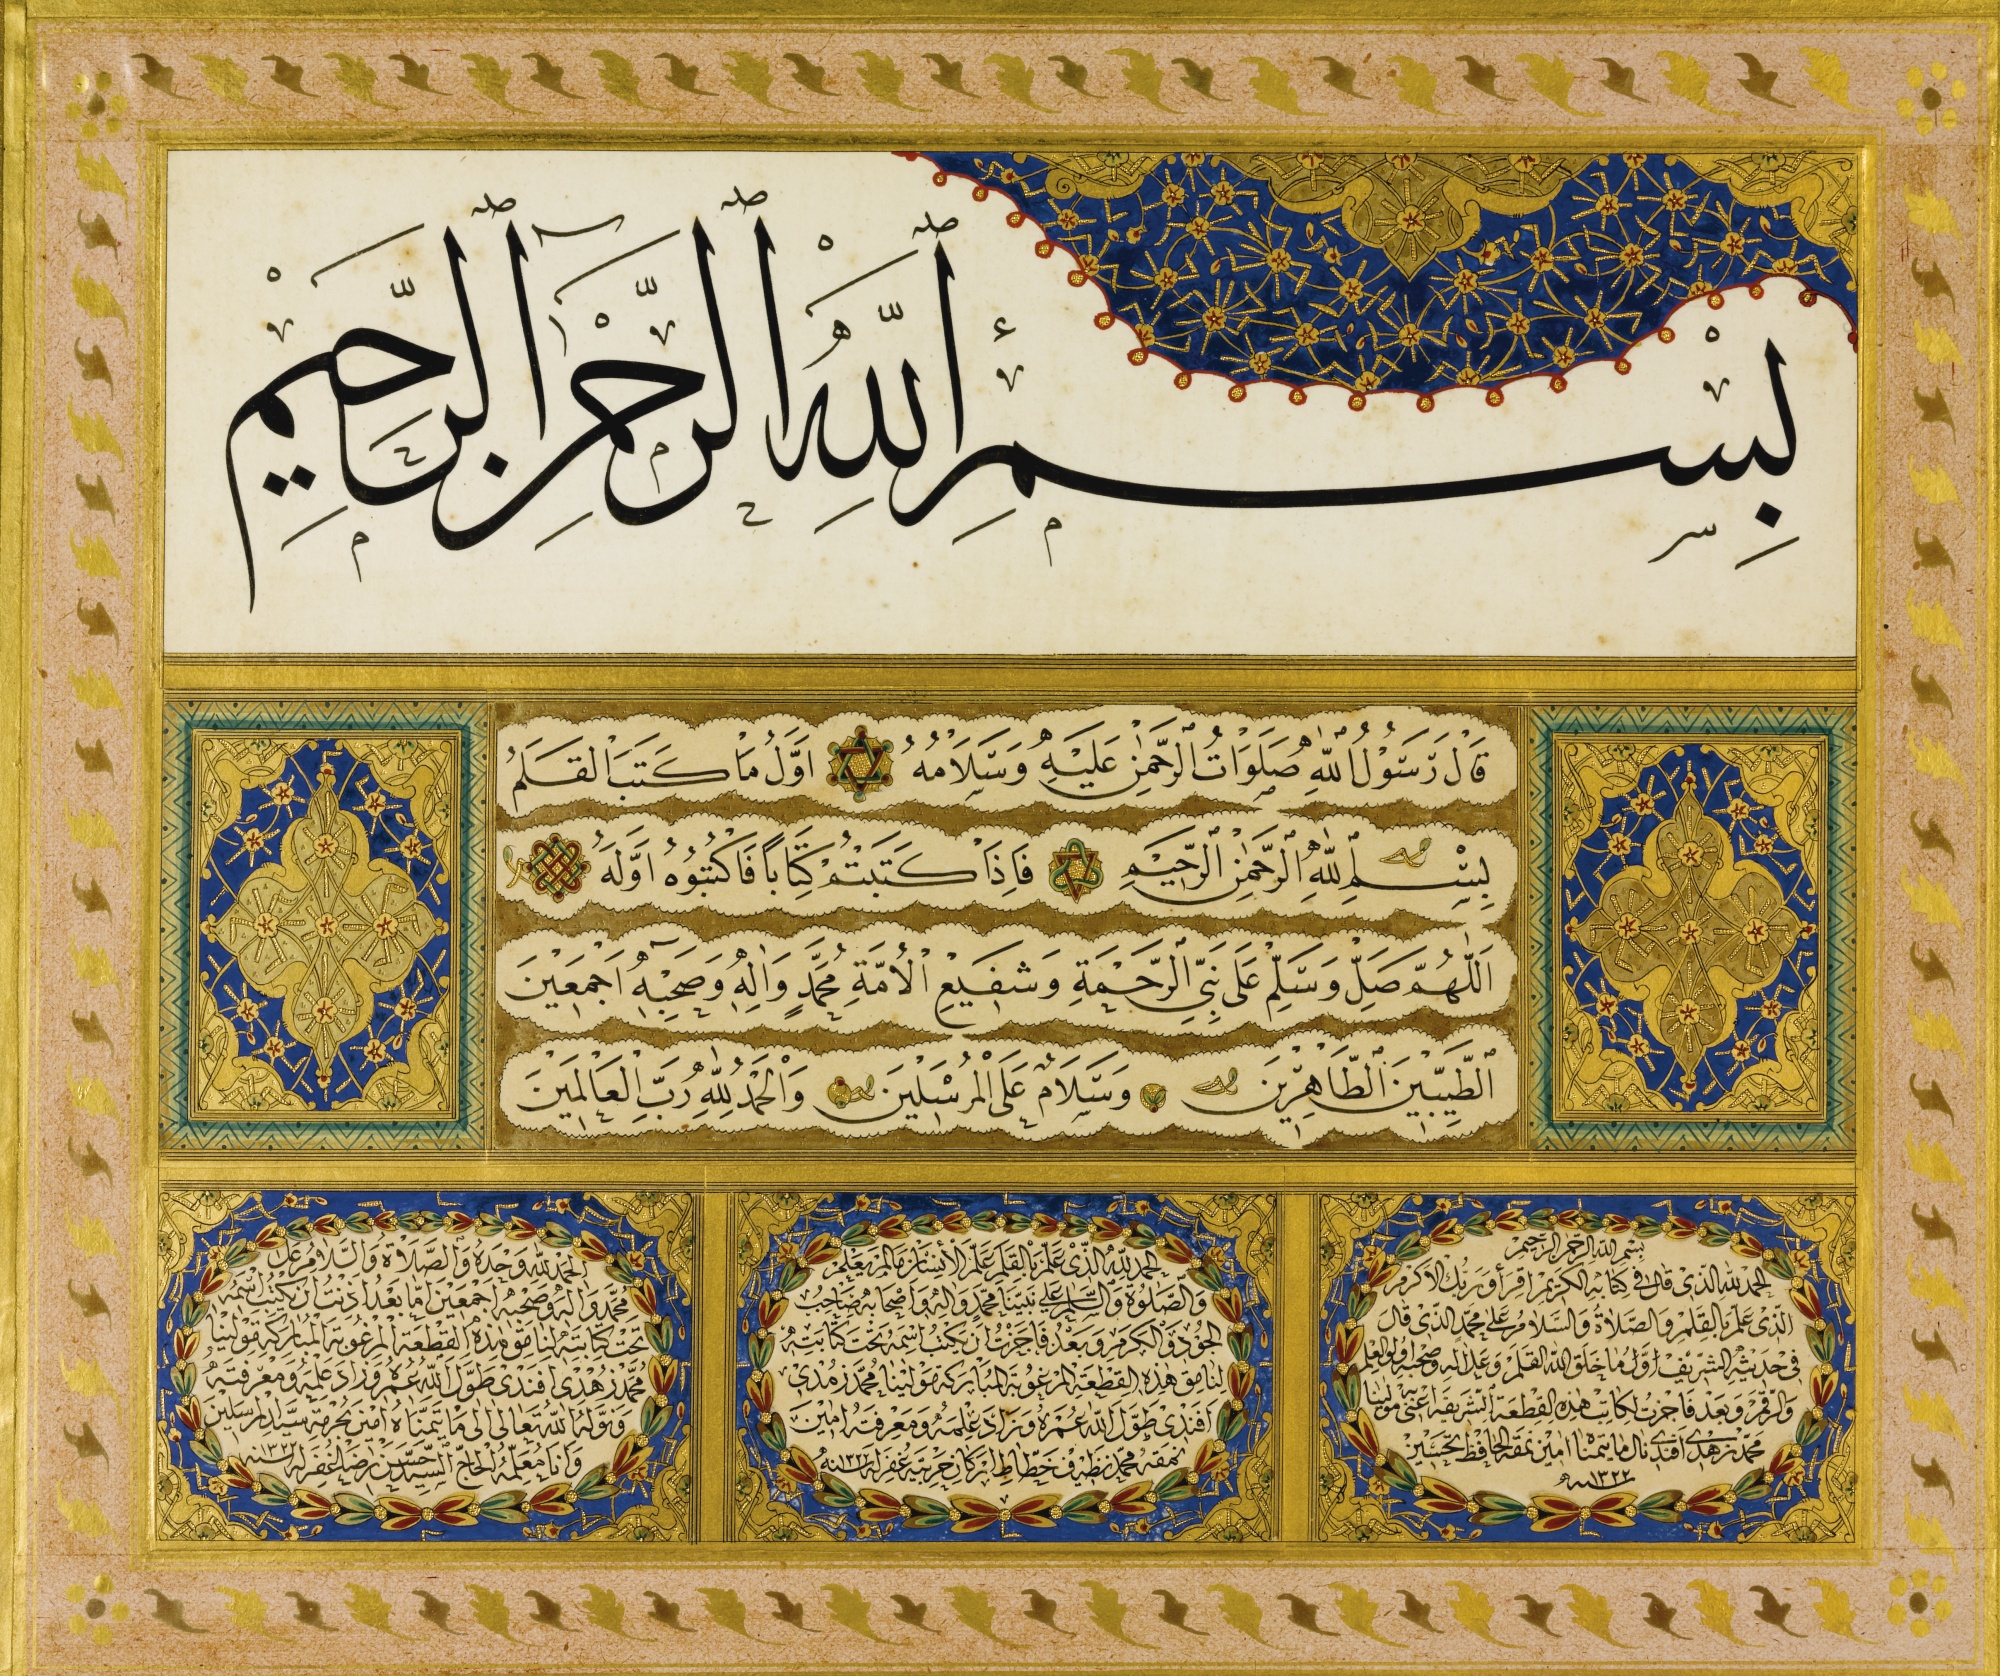 بِسْمِ ٱللّٰهِ ٱلرَّحْمٰنِ ٱلرَّحِيمِ
قَالَ رَسُولُ اللّٰهِ صَلَوَاتُ الرَّحْمٰنِ عَلَيْهِ وَسَلَامُهُ اَوَّلُ مَا كَتَبَ الْقَلَمُ
بِسْمِ اللّٰهِ الرَّحْمٰنِ الرَّحِيمِ فَاِذَا كَتَبْتُمْ كِتَابًا فَاكْتُبُوهُ اَوَّلَهُ
اَللّٰهُمَّ صَلِّ وَسَلِّمْ عَلَى نَبِيِّ الرَّحْمَةِ وَشَفِيعِ الْاُمَّةِ مُحَمَّدٍ وَاٰلِهِ وَصَحْبِهِ اَجْمَعِينَ
الطَّيِّبِينَ الطَّاهِرِينَ وَسَلَامٌ عَلَى الْمُرْسَلِينَ وَالْحَمْدُ لِلّٰهِ رَبِّ الْعَالَمِينَ
بسم الله الرحمن الرحيم
الحمد لله الذي قال في كتابه الكريم اقرأ وربك الاكرم
الذي علم بالقلم والصلاة والسلام على محمد الذي قال
في حديثه الشريف اول ما خلق الله القلم وعلى اله وصحبه اولو العلم
والرقم وبعد فاجزت لكاتب هذه القطعة الشريفة اعني مولينا
محمد زهدي افندي نال ما يتمناه امين نمقه الحافظ تحسين
سنه ١٣٢٢
الحمد لله الذي علم بالقلم علم الانسان مالم يعلم
والصلوة والسلام على نبينا محمد واله واصحابه صاحب
الجود والكرم وبعد فاجزت ان يكتب اسمه تحت كتابته
لنامق هذه القطعة المرغوبة المباركة مولينا محمد زهدي
افندي طول الله عمره وزاد علمه ومعرفته امين
نمقه محمد نظيف خطاط اركان حربيه غفر له سنه ١٣٢٢
الحمد لله وحده والصلاة والسلام على
محمد واله وصحبه اجمعين اما بعد اذنت ان يكتب اسمه
تحت كتابته لنامق هذه القطعة المرغوبة المباركة مولينا
محمد زهدي افندي طول الله عمره وزاد علمه ومعرفته
ونوله الله تعالى الى ما يتمناه امين بحرمة سيد المرسلين
وانا معلمه الحاج السيد حسن رضا غفر له سنه ١٣٢٢